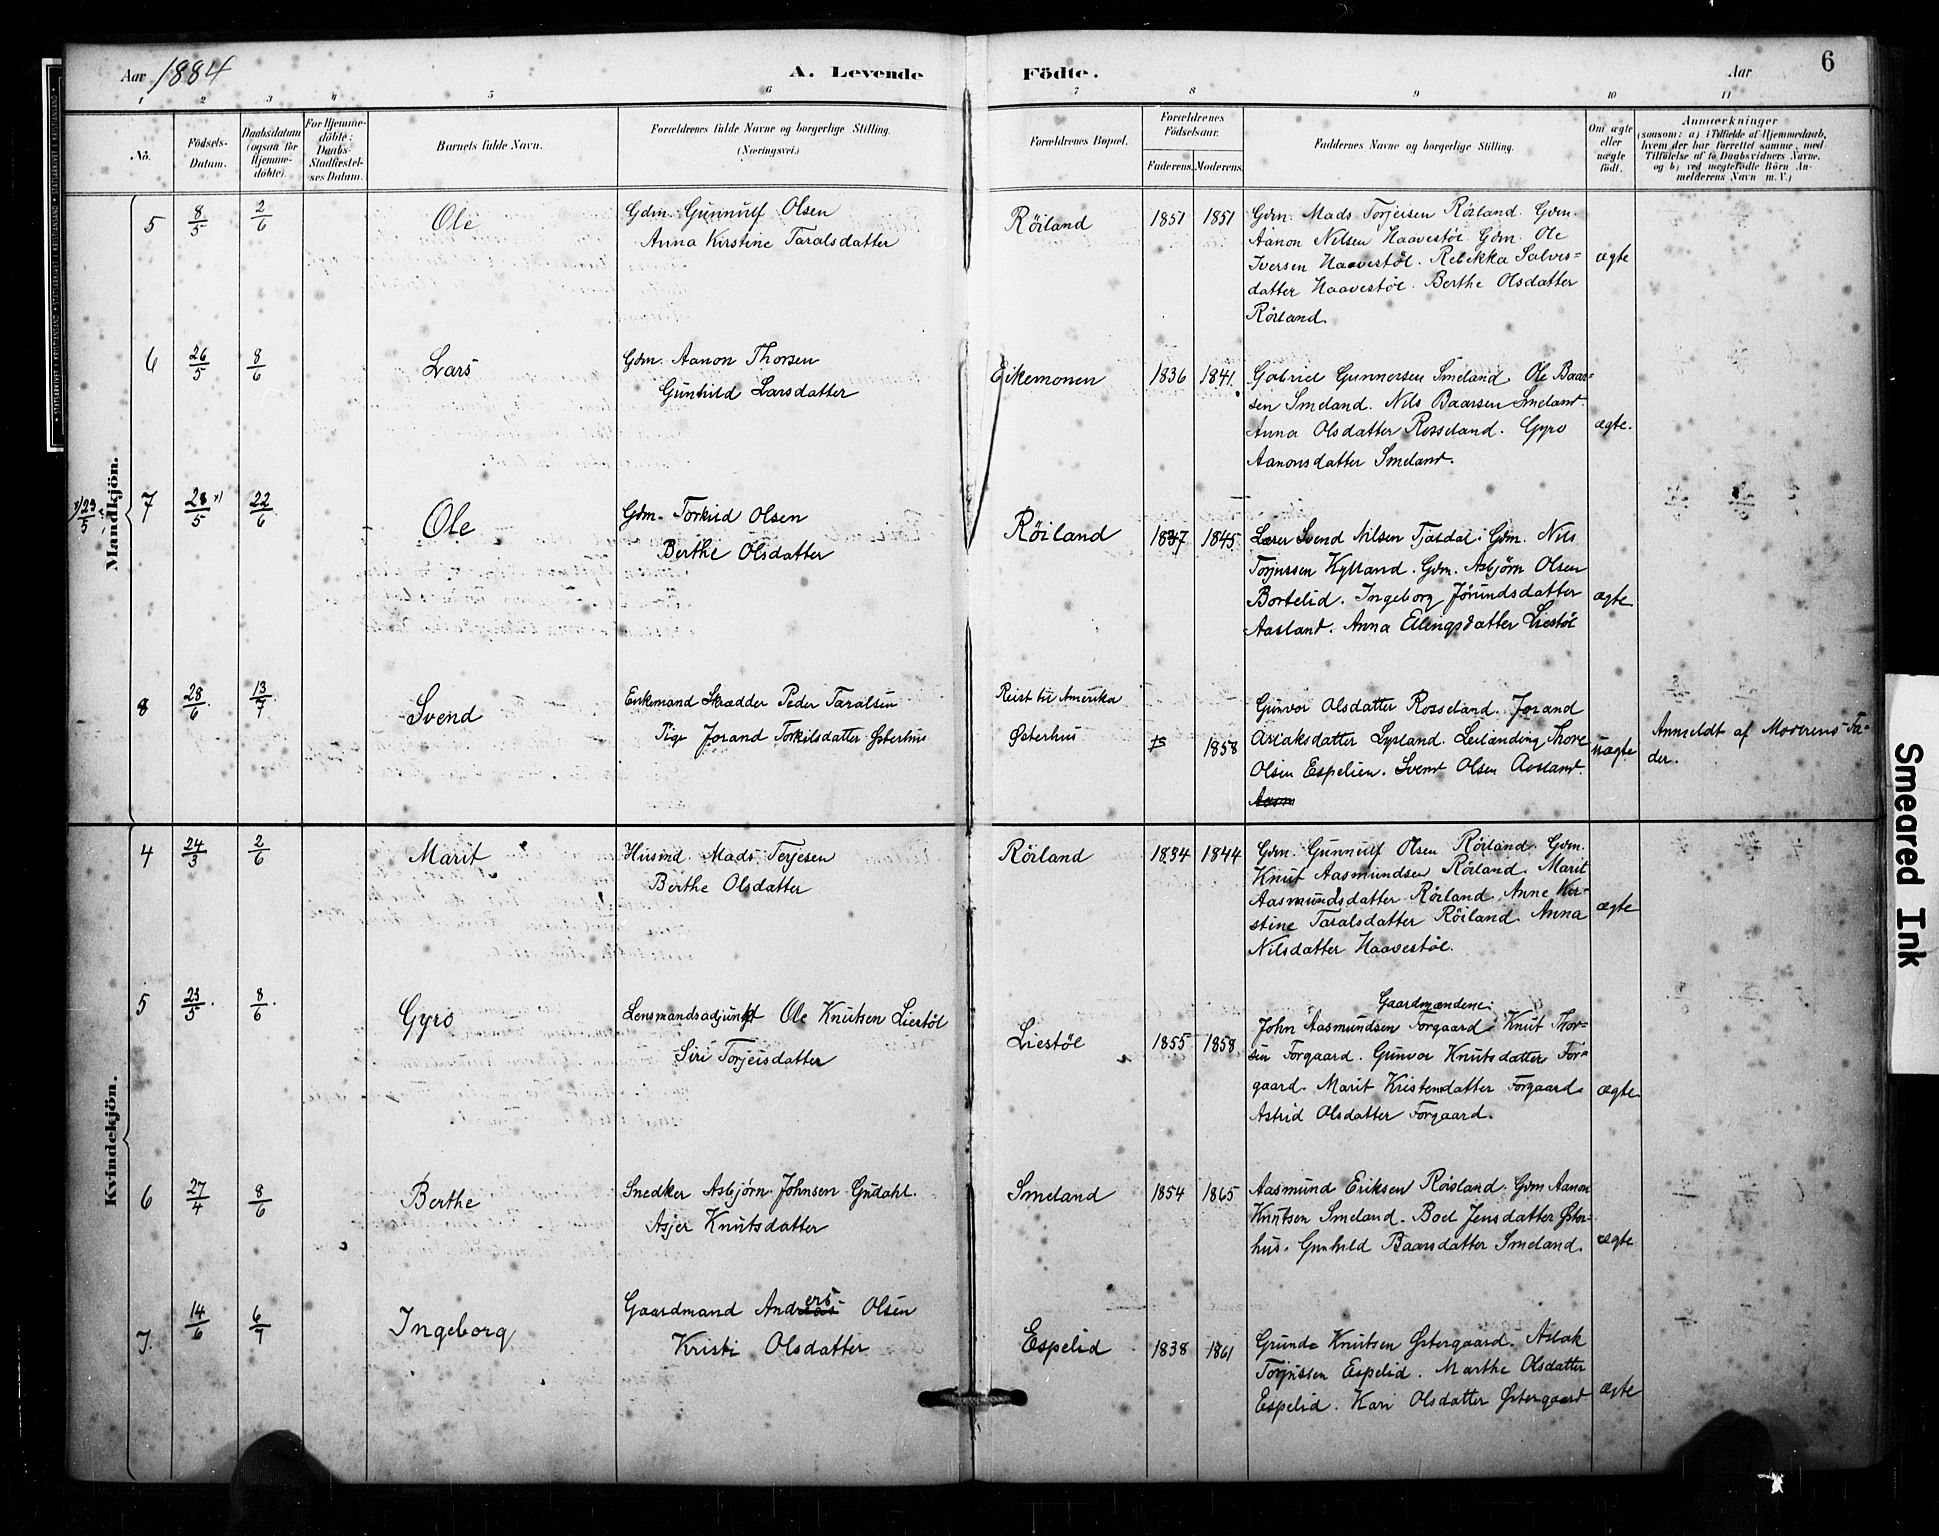 Aar 1884
A. Levende Födte.
Aar
6
1 2 3 4 5 6 7 8 9 10 11
No.
Födsels-
Datum.
Daabsdatum
(ogsaa for
Hjemme-
döbte).
For Hjemme-
döbte;
Daabs-
Stadfæstel-
ses Datum.
Barnets fulde Navn.
Forældrenes fulde Navne og borgerlige Stilling.
(Næringsvei.)
Forældrenes Bopæl.
Forældrenes
Födselsaar.
Faderens. Moderens.
Faddernes Navne og borgerlige Stilling.
Om ægte
eller
uægte
födt.
Anmærkninger
(saasom: a) i Tilfælde af Hjemmedaab,
hvem der har forrettet samme, med
Tilföielse af to Daabsvidners Navne,
og b) ved uægtefödte Börn An-
melderens Navn m. V.)
Mandkjön.
5 8/5 2/6 Ole
Gdm. Gunnulf Olsen
Anna Kirstine Taralsdatter
Röiland 1851 1851
Gdm. Mads Torjeisen Röiland. Gdm.
Aanon Nilsen Haavestöl. Gdm. Ole
Iversen Haavestöl. Rebekka Salves-
datter Haavestöl. Berthe Olsdatter
Röiland.
ægte
6 26/5 8/6 Lars
Gdm. Aanon Thorsen
Gunhild Larsdatter
Eikemonen 1836 1841.
Gabriel Gunnersen Smeland. Ole Baar-
sen Smeland. Nils Baarsen Smeland.
Anna Olsdatter Rosseland. Gyro
Aanonsdatter Smeland.
ægte.
x) 23/5 7 28/5 x) 22/6 Ole
Gdm. Torkild Olsen
Berthe Olsdatter
Röiland 1837 1845
Lærer Svend Nilsen Tjaldal. Gdm. Nils
Torjussen Kylland. Gdm. Asbjörn Olsen
Bortelid. Ingeborg Jörundsdatter
Aasland. Anna Ellingsdatter Liestöl
ægte
8 28/6 13/7 Svend
Enkemand Skrædder Peder Taralsen
Pige Jorand Torkilsdatter Østerhus
Reist til Amerika
Østerhus 1858
Gunvor Olsdatter Rosseland. Jorand
Aslaksdatter Lysland. Leilænding Thore
Olsen Espelien. Svend Olsen Aasland.
Aasm
uægte
Anmeldt af Moderens Fa-
der.
Kvindekjön.
4 24/3 2/6 Marit
Husmd. Mads Terjesen
Berthe Olsdatter
Röiland 1834 1844
Gdm. Gunnulf Olsen Röiland. Gdm.
Knut Aasmundsen Röiland. Marit
Aasmundsdatter Röiland. Anne Kir-
stine Taralsdatter Röiland. Anna
Nilsdatter Haavestöl.
ægte
5 23/5 8/6 Gyro
Lensmandsadjunkt Ole Knutsen Liestöl
Siri Torjeisdatter
Liestöl 1855 1858
Gaardmændene:
John Aasmundsen Forgaard. Knut Thor-
sen Forgaard. Gunvor Knutsdatter For-
gaard. Marit Kristensdatter Forgaard.
Astrid Olsdatter Forgaard.
ægte
6 27/4 8/6 Berthe
Snedker Asbjörn Johnsen Gudahl.
Asjer Knutsdatter
Smeland 1854 1865
Aasmund Eriksen Röisland. Gdm Aanon
Knutsen Smeland. Boel Jensdatter Øster-
hus. Gunhild Baarsdatter Smeland.
ægte
7. 14/6 6/7 Ingeborg
Gaardmand Anders Olsen
Kristi Olsdatter
Espelid 1838 1861
Grunde Knutsen Østergaard. Aslak
Torjussen Espelid. Marthe Olsdatter
Espelid. Kari Olsdatter Østergaard
ægte
Smeared Ink